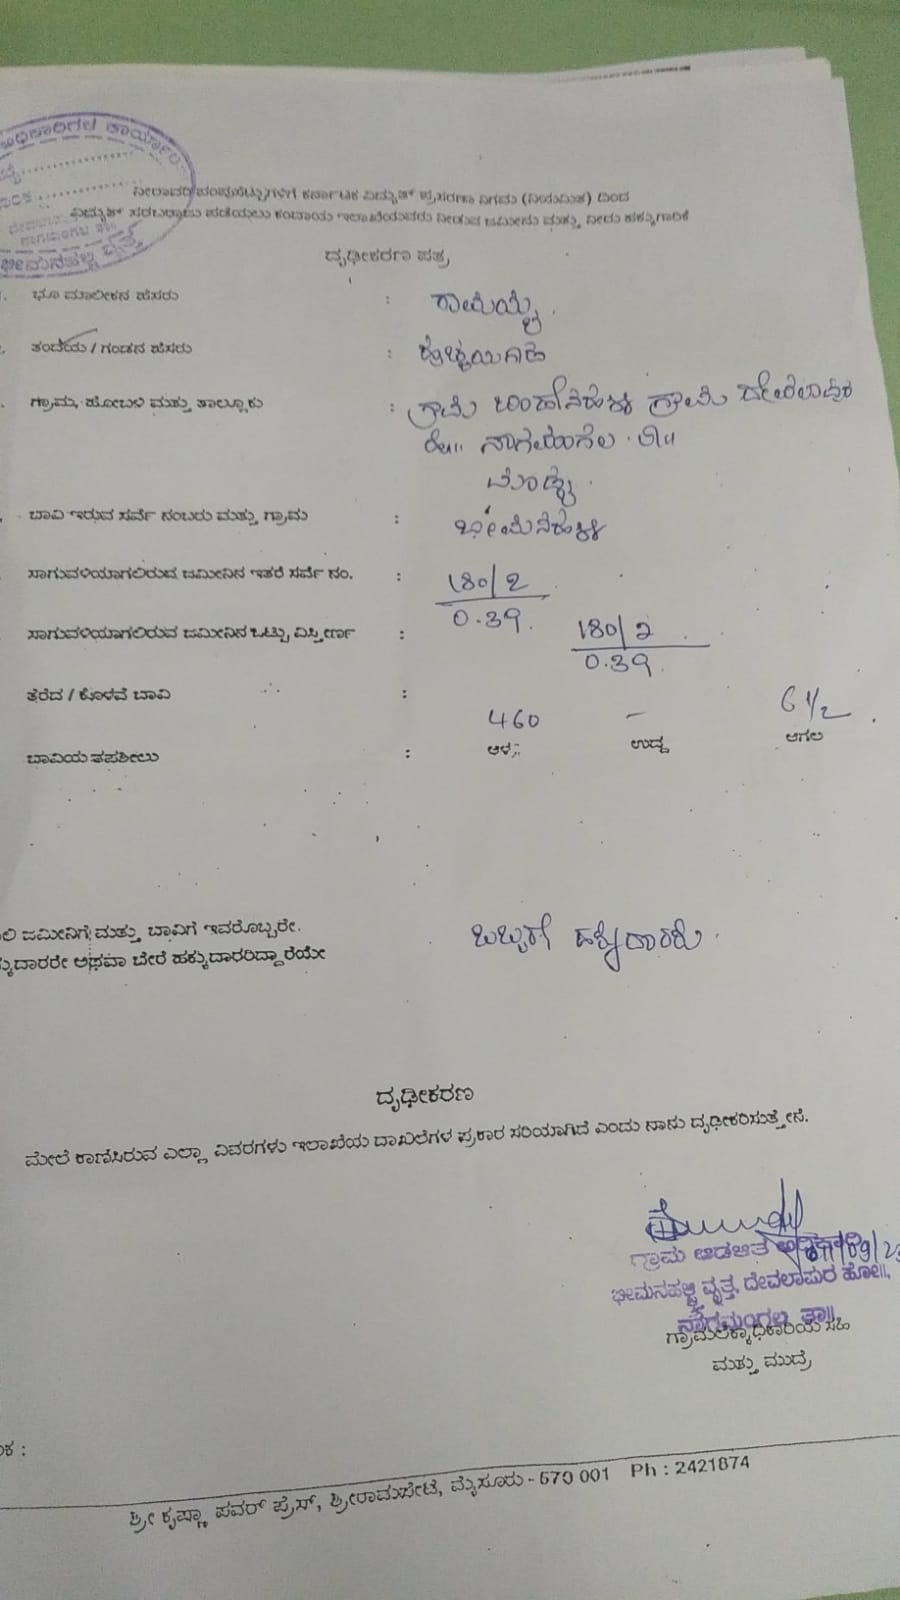 ಅಧಿಕಾರಿಗಳ ಕಾರ್ಯಾಲ
ನಾಗಮಂಗಲ ತಾ||
ಭೀಮನಹಳ್ಳಿ ವೃತ್ತ
ನೀರಾವರಿ ಪಂಪ್‌ಸೆಟ್ಟುಗಳಿಗೆ ಕರ್ನಾಟಕ ವಿದ್ಯುತ್ ಪ್ರಸರಣಾ ನಿಗಮ (ನಿಯಮಿತ) ದಿಂದ
ವಿದ್ಯುತ್ ಸರಬರಾಜು ಪಡೆಯಲು ಕಂದಾಯ ಇಲಾಖೆಯವರು ನೀಡುವ ಜಮೀನು ಮತ್ತು ನೀರು ಹಕ್ಕುಗಾರಿಕೆ
ದೃಢೀಕರಣ ಪತ್ರ
ಭೂ ಮಾಲೀಕನ ಹೆಸರು :
ತಂದೆಯ / ಗಂಡನ ಹೆಸರು :
ಗ್ರಾಮ, ಹೋಬಳಿ ಮತ್ತು ತಾಲ್ಲೂಕು : ಗ್ರಾಮ
ನಾಗಮಂಗಲ ತಾ||
ಮಂಡ್ಯ.
ಬಾವಿ ಇರುವ ಸರ್ವೆ ನಂಬರು ಮತ್ತು ಗ್ರಾಮ : ಭೀಮನಹಳ್ಳಿ
ಸಾಗುವಳಿಯಾಗಲಿರುವ ಜಮೀನಿನ ಇತರೆ ಸರ್ವೆ ನಂ. : 180/2
0.39.
ಸಾಗುವಳಿಯಾಗಲಿರುವ ಜಮೀನಿನ ಒಟ್ಟು ವಿಸ್ತೀರ್ಣ : 180/2
0.39.
ತೆರೆದ / ಕೊಳವೆ ಬಾವಿ :
460 – 6 1/2
ಬಾವಿಯ ತಪಶೀಲು : ಆಳ ಉದ್ದ ಅಗಲ
ಜಮೀನಿಗೆ ಮತ್ತು ಬಾವಿಗೆ ಇವರೊಬ್ಬರೇ. ಒಬ್ಬರೇ ಹಕ್ಕುದಾರರು.
ಕ್ಕುದಾರರೇ ಅಥವಾ ಬೇರೆ ಹಕ್ಕುದಾರರಿದ್ದಾರೆಯೇ
ದೃಢೀಕರಣ
ಮೇಲೆ ಕಾಣಿಸಿರುವ ಎಲ್ಲಾ ವಿವರಗಳು ಇಲಾಖೆಯ ದಾಖಲೆಗಳ ಪ್ರಕಾರ ಸರಿಯಾಗಿದೆ ಎಂದು ನಾನು ದೃಢೀಕರಿಸುತ್ತೇನೆ.
ಗ್ರಾಮ ಆಡಳಿತ ಅಧಿಕಾರಿ
ಭೀಮನಹಳ್ಳಿ ವೃತ್ತ, ದೇವಲಾಪುರ ಹೋ||,
ನಾಗಮಂಗಲ ತಾ||
ಗ್ರಾಮಲೆಕ್ಕಾಧಿಕಾರಿಯ ಸಹಿ
ಮತ್ತು ಮುದ್ರೆ
ಶ್ರೀ ಕೃಷ್ಣಾ ಪವರ್ ಪ್ರೆಸ್, ಶ್ರೀರಾಮಪೇಟೆ, ಮೈಸೂರು - 570 001 Ph : 2421874